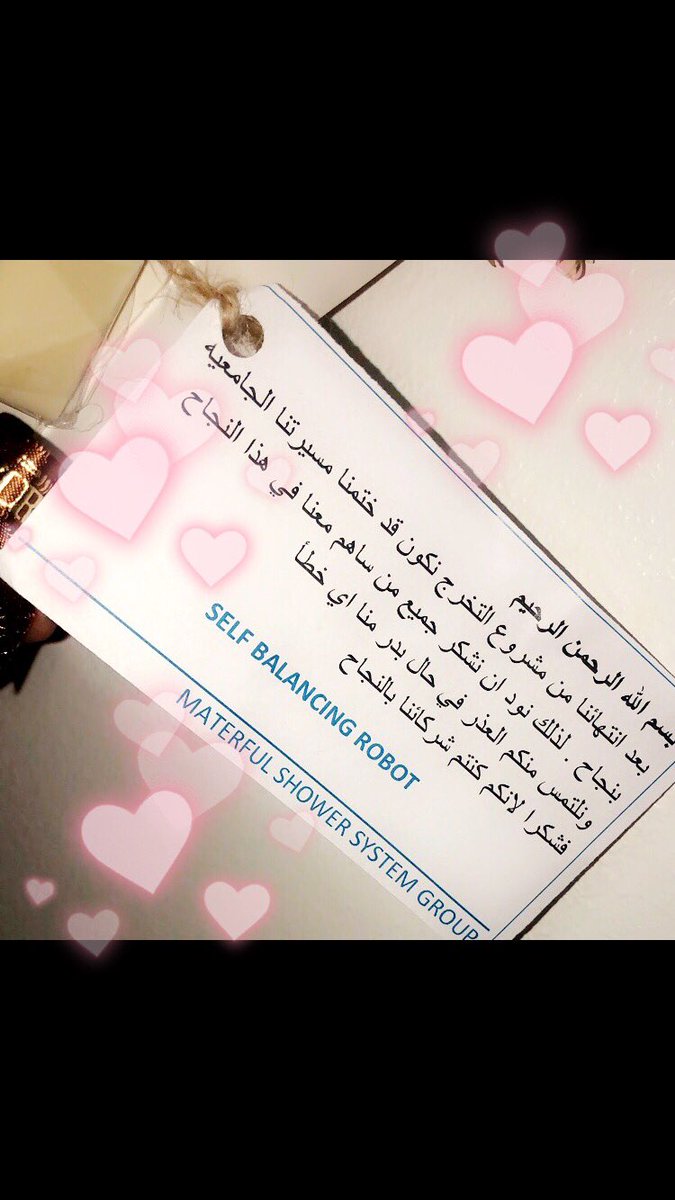 بسم الله الرحمن الرحيم
بعد انتهائنا من مشروع التخرج نكون قد ختمنا مسيرتنا الجامعيه
بنجاح . لذلك نود ان نشكر جميع من ساهم معنا في هذا النجاح
ونلتمس منكم العذر في حال بدر منا اي خطأ
فشكرا لانكم كنتم شركائنا بالنجاح
SELF BALANCING ROBOT
MATERFUL SHOWER SYSTEM GROUP